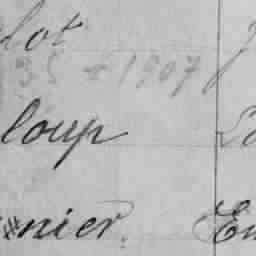 lot
35 + 1907
loup
nier. En